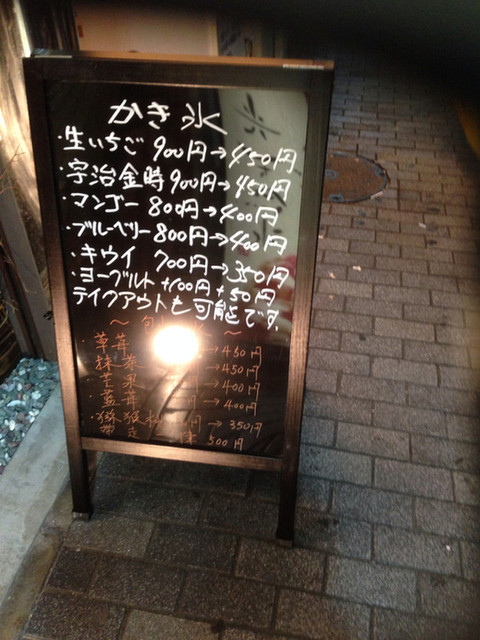 かき氷
・生いちご 900円→450円
・宇治金時 900円→450円
・マンゴー 800円→400円
・ブルーベリー 800円→400円
・キウイ 700円→350円
・ヨーグルト +100円+50円
テイクアウトも可能です。
～ ～
草苺 →450円
抹茶 →450円
芒果 →400円
藍苺 →400円
猕猴桃 円→350円
帯走 500円